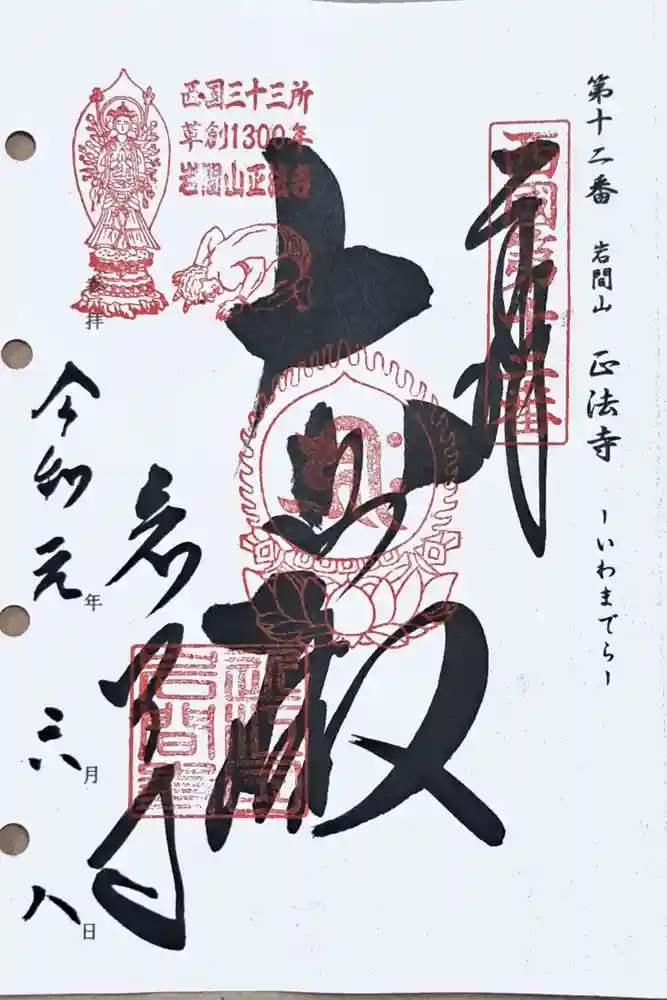 第十二番 岩間山 正法寺 -いわまでら-
奉拝
西国第十二番
大悲殿
岩間寺
西国三十三所
草創1300年
岩間山正法寺
参拝
令和元年 六月 八日